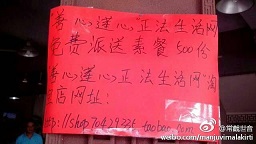 善心,莲心,正法生活网
免费派送素餐500份
善心,莲心,正法生活网"淘
宝店网址:
://shop70429325.taobao.com
@常戴世音
weibo.com/manjuvimalakirti